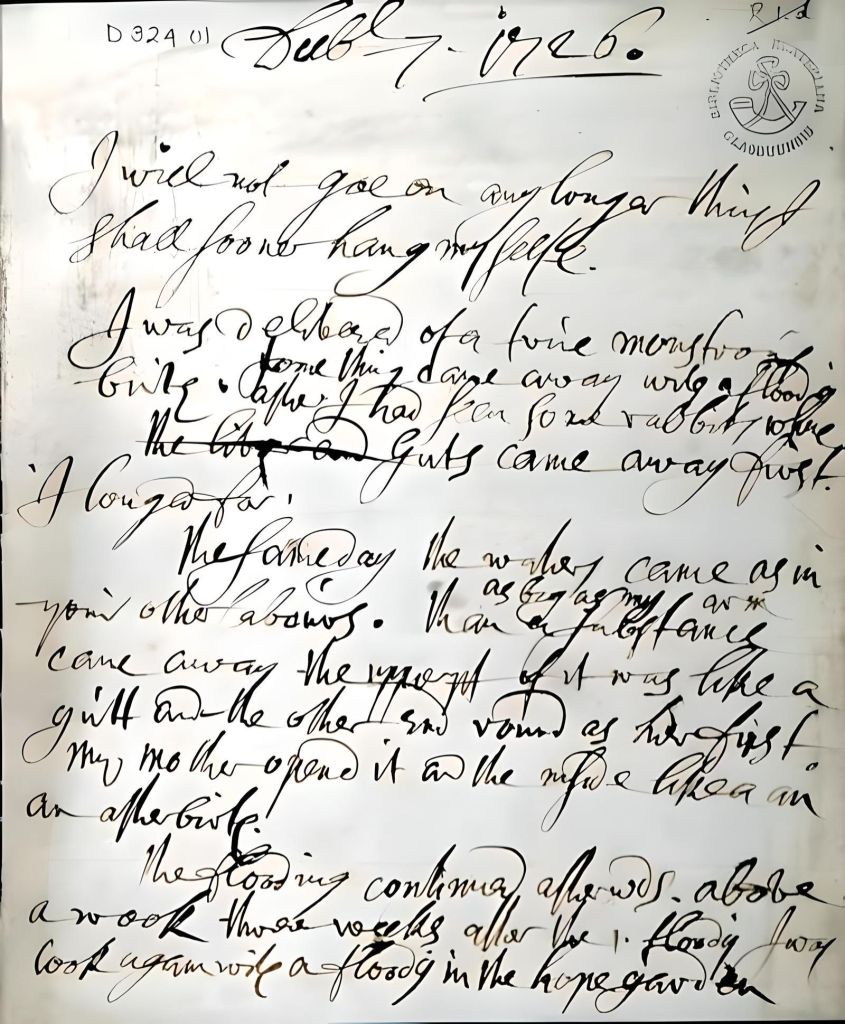 D 324 01
Decbr 7. 1726.
BIBLIOTHECA HUNTERIANA
I will not goe on any longer thing I
shall sooner hang my selfe.
I was delibered of a true monstro
birth. some thing came away with a floodg
after I had seen some rabbits, whose
the liber and Guts came away first.
I longed for.
the same day the waters came as in
your other labours. than as big as my arm a substance
came away the uppept of it was like a
gutt and the other end round as her fist
my mother opend it and the inside like a
an afterbirth.
the flooding continued afterwds. above
a week three weeks after the 1. floodg I was
took again with a floodg in the hope garden